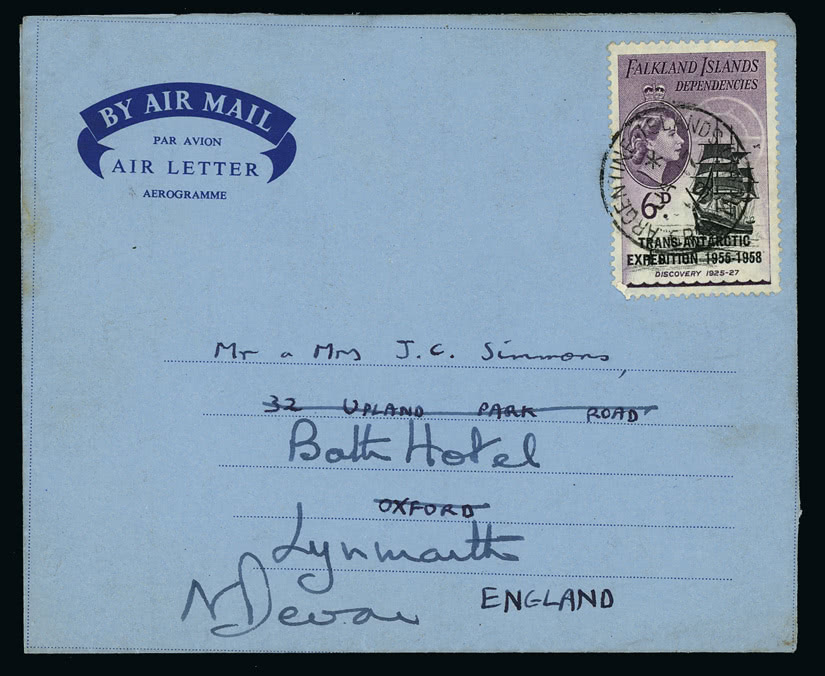 BY AIR MAIL
PAR AVION
AIR LETTER
AEROGRAMME
FALKLAND ISLANDS
DEPENDENCIES
6D.
TRANS-ANTARCTIC
EXPEDITION 1955-1958
DISCOVERY 1925-27
ARGENTINE ISLANDS
Mr & Mrs J.C. Simmons,
32 UPLAND PARK ROAD
Bath Hotel
OXFORD
Lynmouth
N Devon
ENGLAND